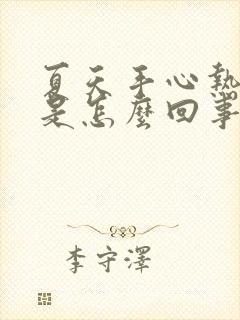 夏天手心熱
是怎麼回事
李守澤